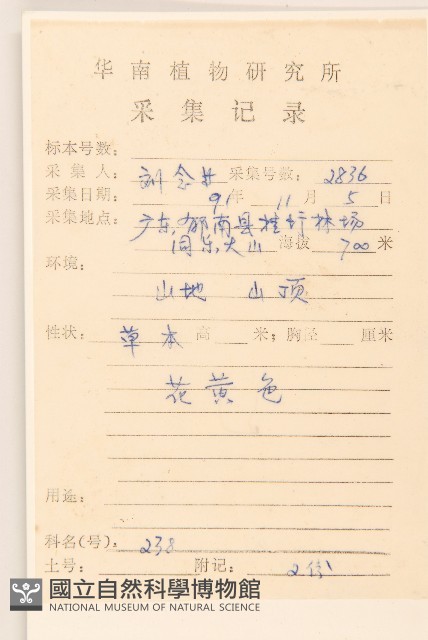 华南植物研究所
采集记录
标本号数：
采集人： 刘念 等 采集号数： 2836
采集日期： 91 年 11 月 5 日
采集地点： 广东, 郁南县桂圩林场
同乐大山 海拔 700 米
环境：
山地 山顶
性状： 草本 高 米；胸径 厘米
花黄色
用途：
科名(号)： 238
土号： 附记： 2份
國立自然科學博物館
NATIONAL MUSEUM OF NATURAL SCIENCE